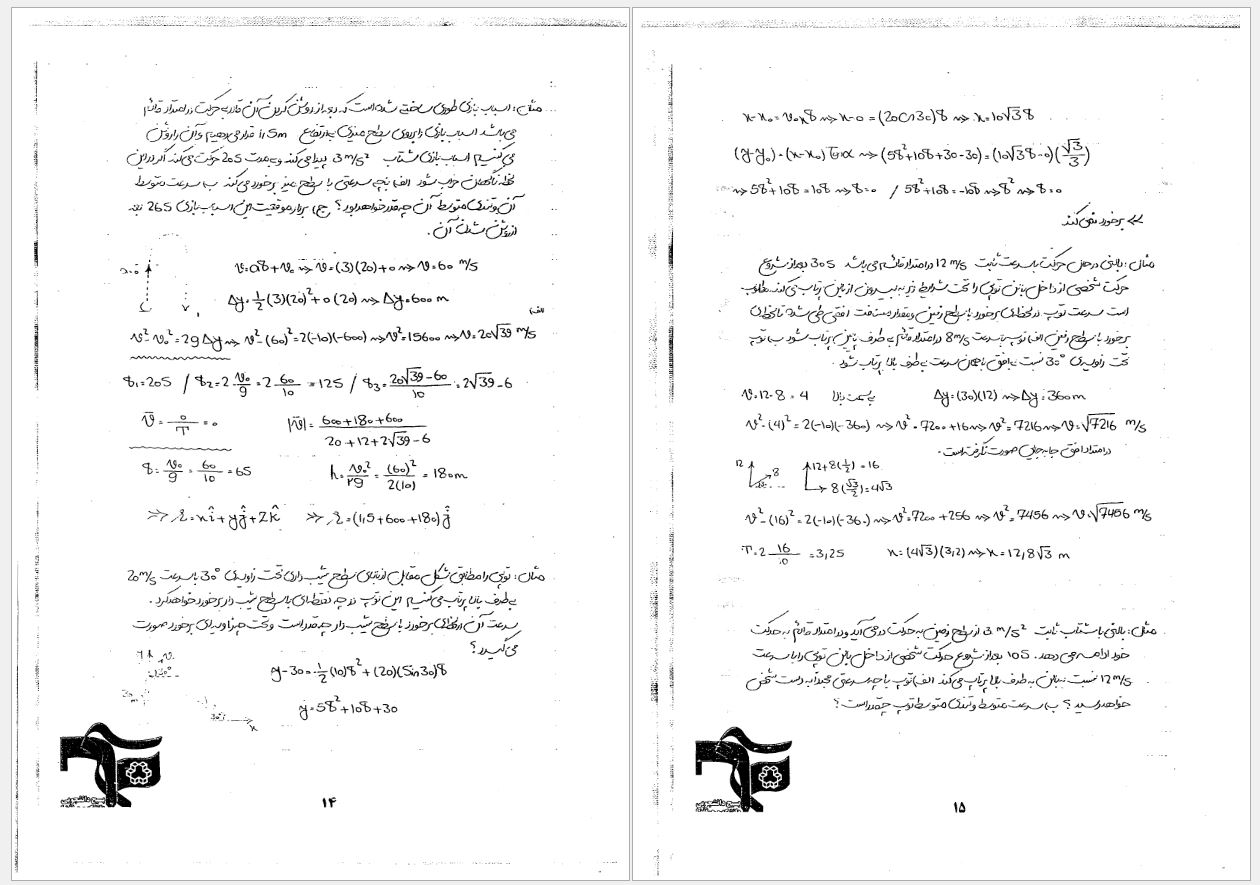 مثال: اسباب بازی طوری ساخته شده است که بعد از روشن کردن آن قادر به حرکت در امتداد قائم
می باشد اسباب بازی را بر روی سطح میزی به ارتفاع 1,5m قرار می دهیم و آن را روشن
می کنیم اسباب بازی شتاب 3 m/s² پیدا می کند و به مدت 20s حرکت می کند اگر در این
لحظه ناگهان خراب شود الف) با چه سرعتی با سطح میز برخورد می کند ب) سرعت متوسط
آن و تندی متوسط آن چه قدر خواهد بود؟ ج) بردار موقعیت این اسباب بازی 26s بعد
از روشن شدن آن.
v=at+v₀ ⇝ v=(3)(20)+0 ⇝ v=60 m/s
Δy=1/2(3)(20)²+0(20) ⇝ Δy=600 m
الف)
v²-v₀²=2gΔy ⇝ v²-(60)²=2(-10)(-600) ⇝ v²=15600 ⇝ v=20√39 m/s
t₁=20s / t₂=2 v₀/g=2 60/10=12s / t₃=(20√39-60)/10=2√39-6
v̄=0/T=0 |v̄|=(600+180+600)/(20+12+2√39-6)
t=v₀/g=60/10=6s h=v₀²/2g=(60)²/2(10)=180m
⇒ r=xî+yĵ+zk̂ ⇒ r=(1,5+600+180)ĵ
مثال: توپی را مطابق شکل مقابل از بالای سطح شیب داری تحت زاویه ی 30° با سرعت 20m/s
به طرف بالا پرتاب می کنیم این توپ در چه نقطه ای با سطح شیب دار برخورد خواهد کرد.
سرعت آن در لحظه ی برخورد با سطح شیب دار چه قدر است و تحت چه زاویه ای برخورد صورت
می گیرد؟
y-30=1/2(10)t²+(20)(Sin30)t
y=5t²+10t+30
x
۱۴
x-x₀=v₀ₓt ⇝ x-0=(20Cos30)t ⇝ x=10√3t
(y-y₀)=(x-x₀)tanα ⇝ (5t²+10t+30-30)=(10√3t-0)(√3/3)
⇝ 5t²+10t=10t ⇝ t=0 / 5t²+10t=-10t ⇝ t² ⇝ t=0
⇒ برخورد نمی کند
مثال: بالنی در حال حرکت با سرعت ثابت 12 m/s در امتداد قائم می باشد 30s بعد از شروع
حرکت شخصی از داخل بالن توپی را تحت شرایط زیر به بیرون از بالن پرتاب می کند. مطلوب
است سرعت توپ در لحظه ی برخورد با سطح زمین و مقدار مسافت افقی طی شده تا لحظه ی
برخورد با سطح زمین الف) توپ با سرعت 8m/s در امتداد قائم به طرف پایین پرتاب شود ب) توپ
تحت زاویه ی 30° نسبت به افق با همان سرعت به طرف بالا پرتاب شود.
v=12-8=4 به سمت بالا Δy=(30)(12) ⇝ Δy=360m
v²-(4)²=2(-10)(-360) ⇝ v²=7200+16 ⇝ v²=7216 ⇝ v=√7216 m/s
در امتداد افق جابه جایی صورت نگرفته است.
12 8 12+8(1/2)=16
8(√3/2)=4√3
v²-(16)²=2(-10)(-360) ⇝ v²=7200+256 ⇝ v²=7456 ⇝ v=√7456 m/s
T=2 16/10=3,2s x=(4√3)(3,2) ⇝ x=12,8√3 m
مثال: بالنی با شتاب ثابت 3 m/s² از سطح زمین به حرکت در می آید و در امتداد قائم به حرکت
خود ادامه می دهد. 10s بعد از شروع حرکت شخصی از داخل بالن توپی را با سرعت
12m/s نسبت به بالن به طرف بالا پرتاب می کند الف) توپ با چه سرعتی مجددا به دست شخص
خواهد رسید؟ ب) سرعت متوسط و تندی متوسط توپ چقدر است؟
۱۵